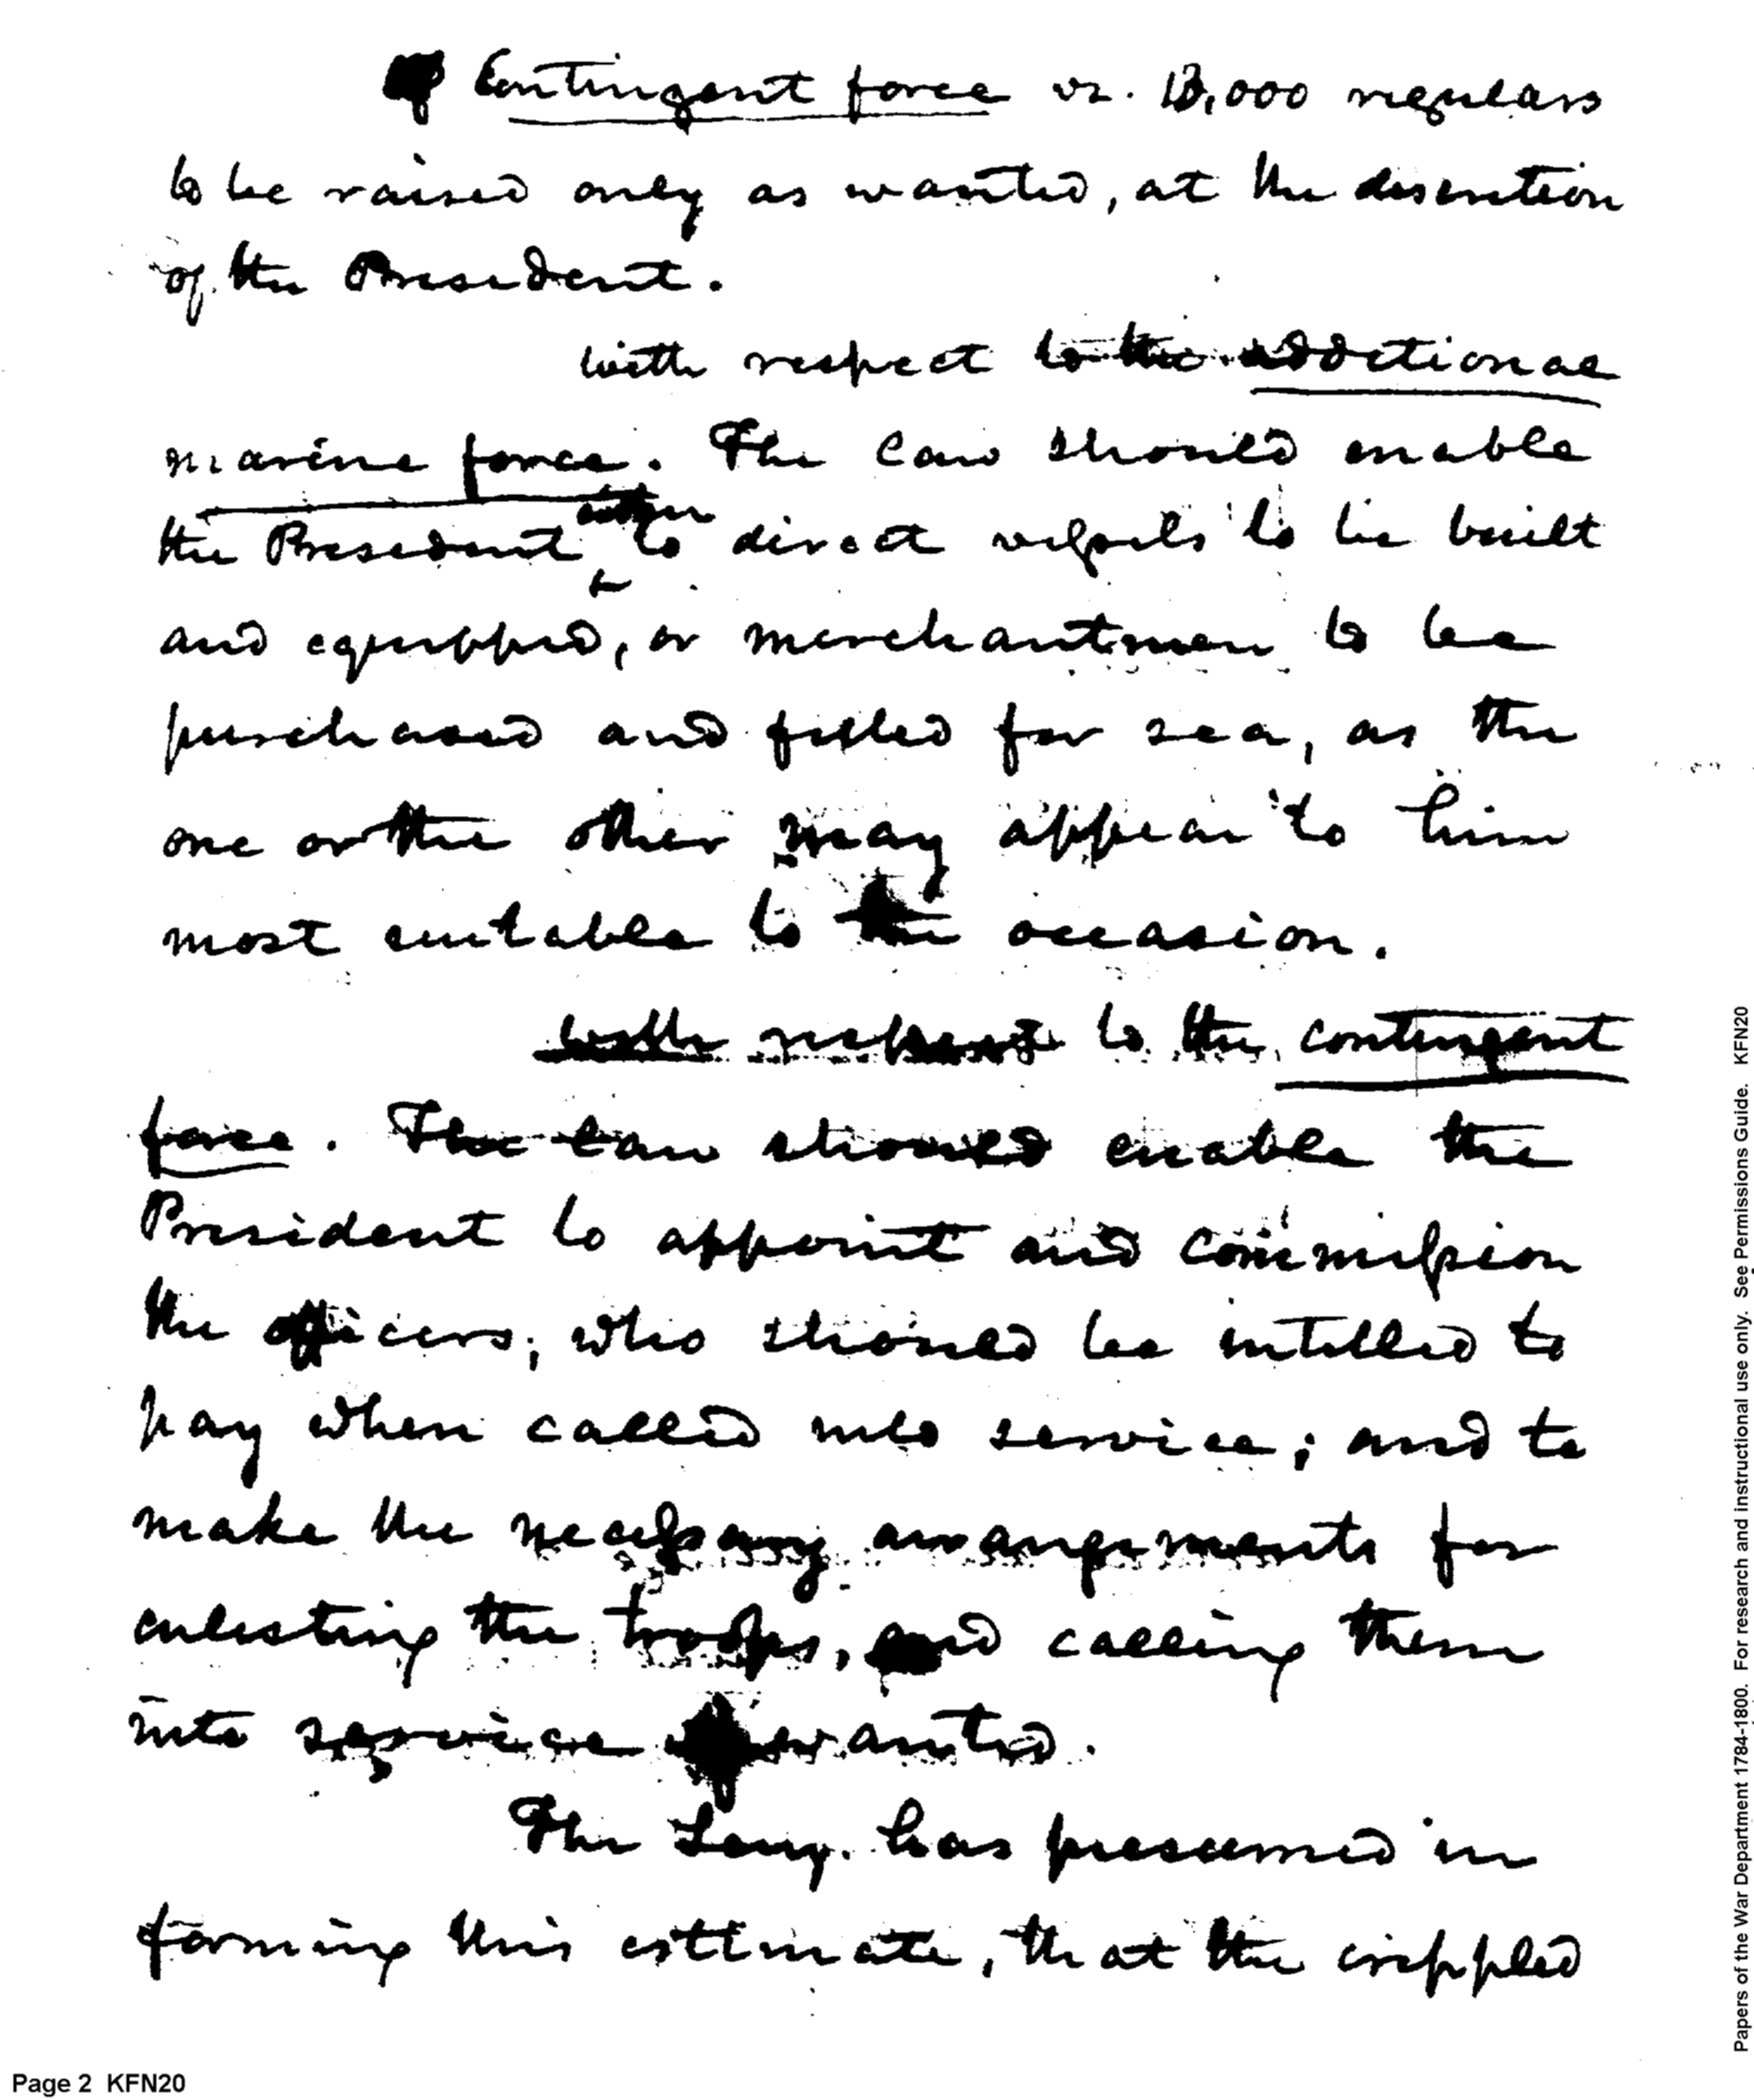 of Contingent force vz. 10,000 regulars
to be raised only as wanted, at the discretion
of the President.
with respect to the additional
marine force. The law should enable
the President either to direct vessels to be built
and equipped, or merchantmen to be
purchased and fitted for sea, as the
one or the other may appear to him
most suitable to the occasion.
with respect to the contingent
force. The law should enable the
President to appoint and commission
the officers; who should be intitled to
pay when called into service; and to
make the necessary arrangements for
enlisting the troops, and calling them
into service wanted.
The Secy. has presumed in
forming this estimate, that the crippled
Page 2 KFN20
Papers of the War Department 1784-1800. For research and instructional use only. See Permissions Guide. KFN20